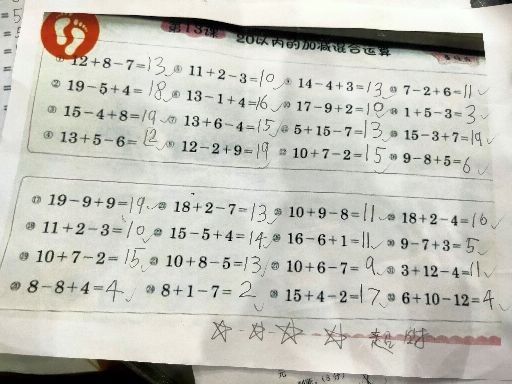 第13课 20以内的加减混合运算
① 12+8-7=13 ⑤ 11+2-3=10 ⑨ 14-4+3=13 ⑬ 7-2+6=11
② 19-5+4=18 ⑥ 13-1+4=16 ⑩ 17-9+2=10 ⑭ 1+5-3=3
③ 15-4+8=19 ⑦ 13+6-4=15 ⑪ 5+15-7=13 ⑮ 15-3+7=19
④ 13+5-6=12 ⑧ 12-2+9=19 ⑫ 10+7-2=15 ⑯ 9-8+5=6
⑰ 19-9+9=19 ㉑ 18+2-7=13 ㉕ 10+9-8=11 ㉙ 18+2-4=16
⑱ 11+2-3=10 ㉒ 15-5+4=14 ㉖ 16-6+1=11 ㉚ 9-7+3=5
⑲ 10+7-2=15 ㉓ 10+8-5=13 ㉗ 10+6-7=9 ㉛ 3+12-4=11
⑳ 8-8+4=4 ㉔ 8+1-7=2 ㉘ 15+4-2=17 ㉜ 6+10-12=4